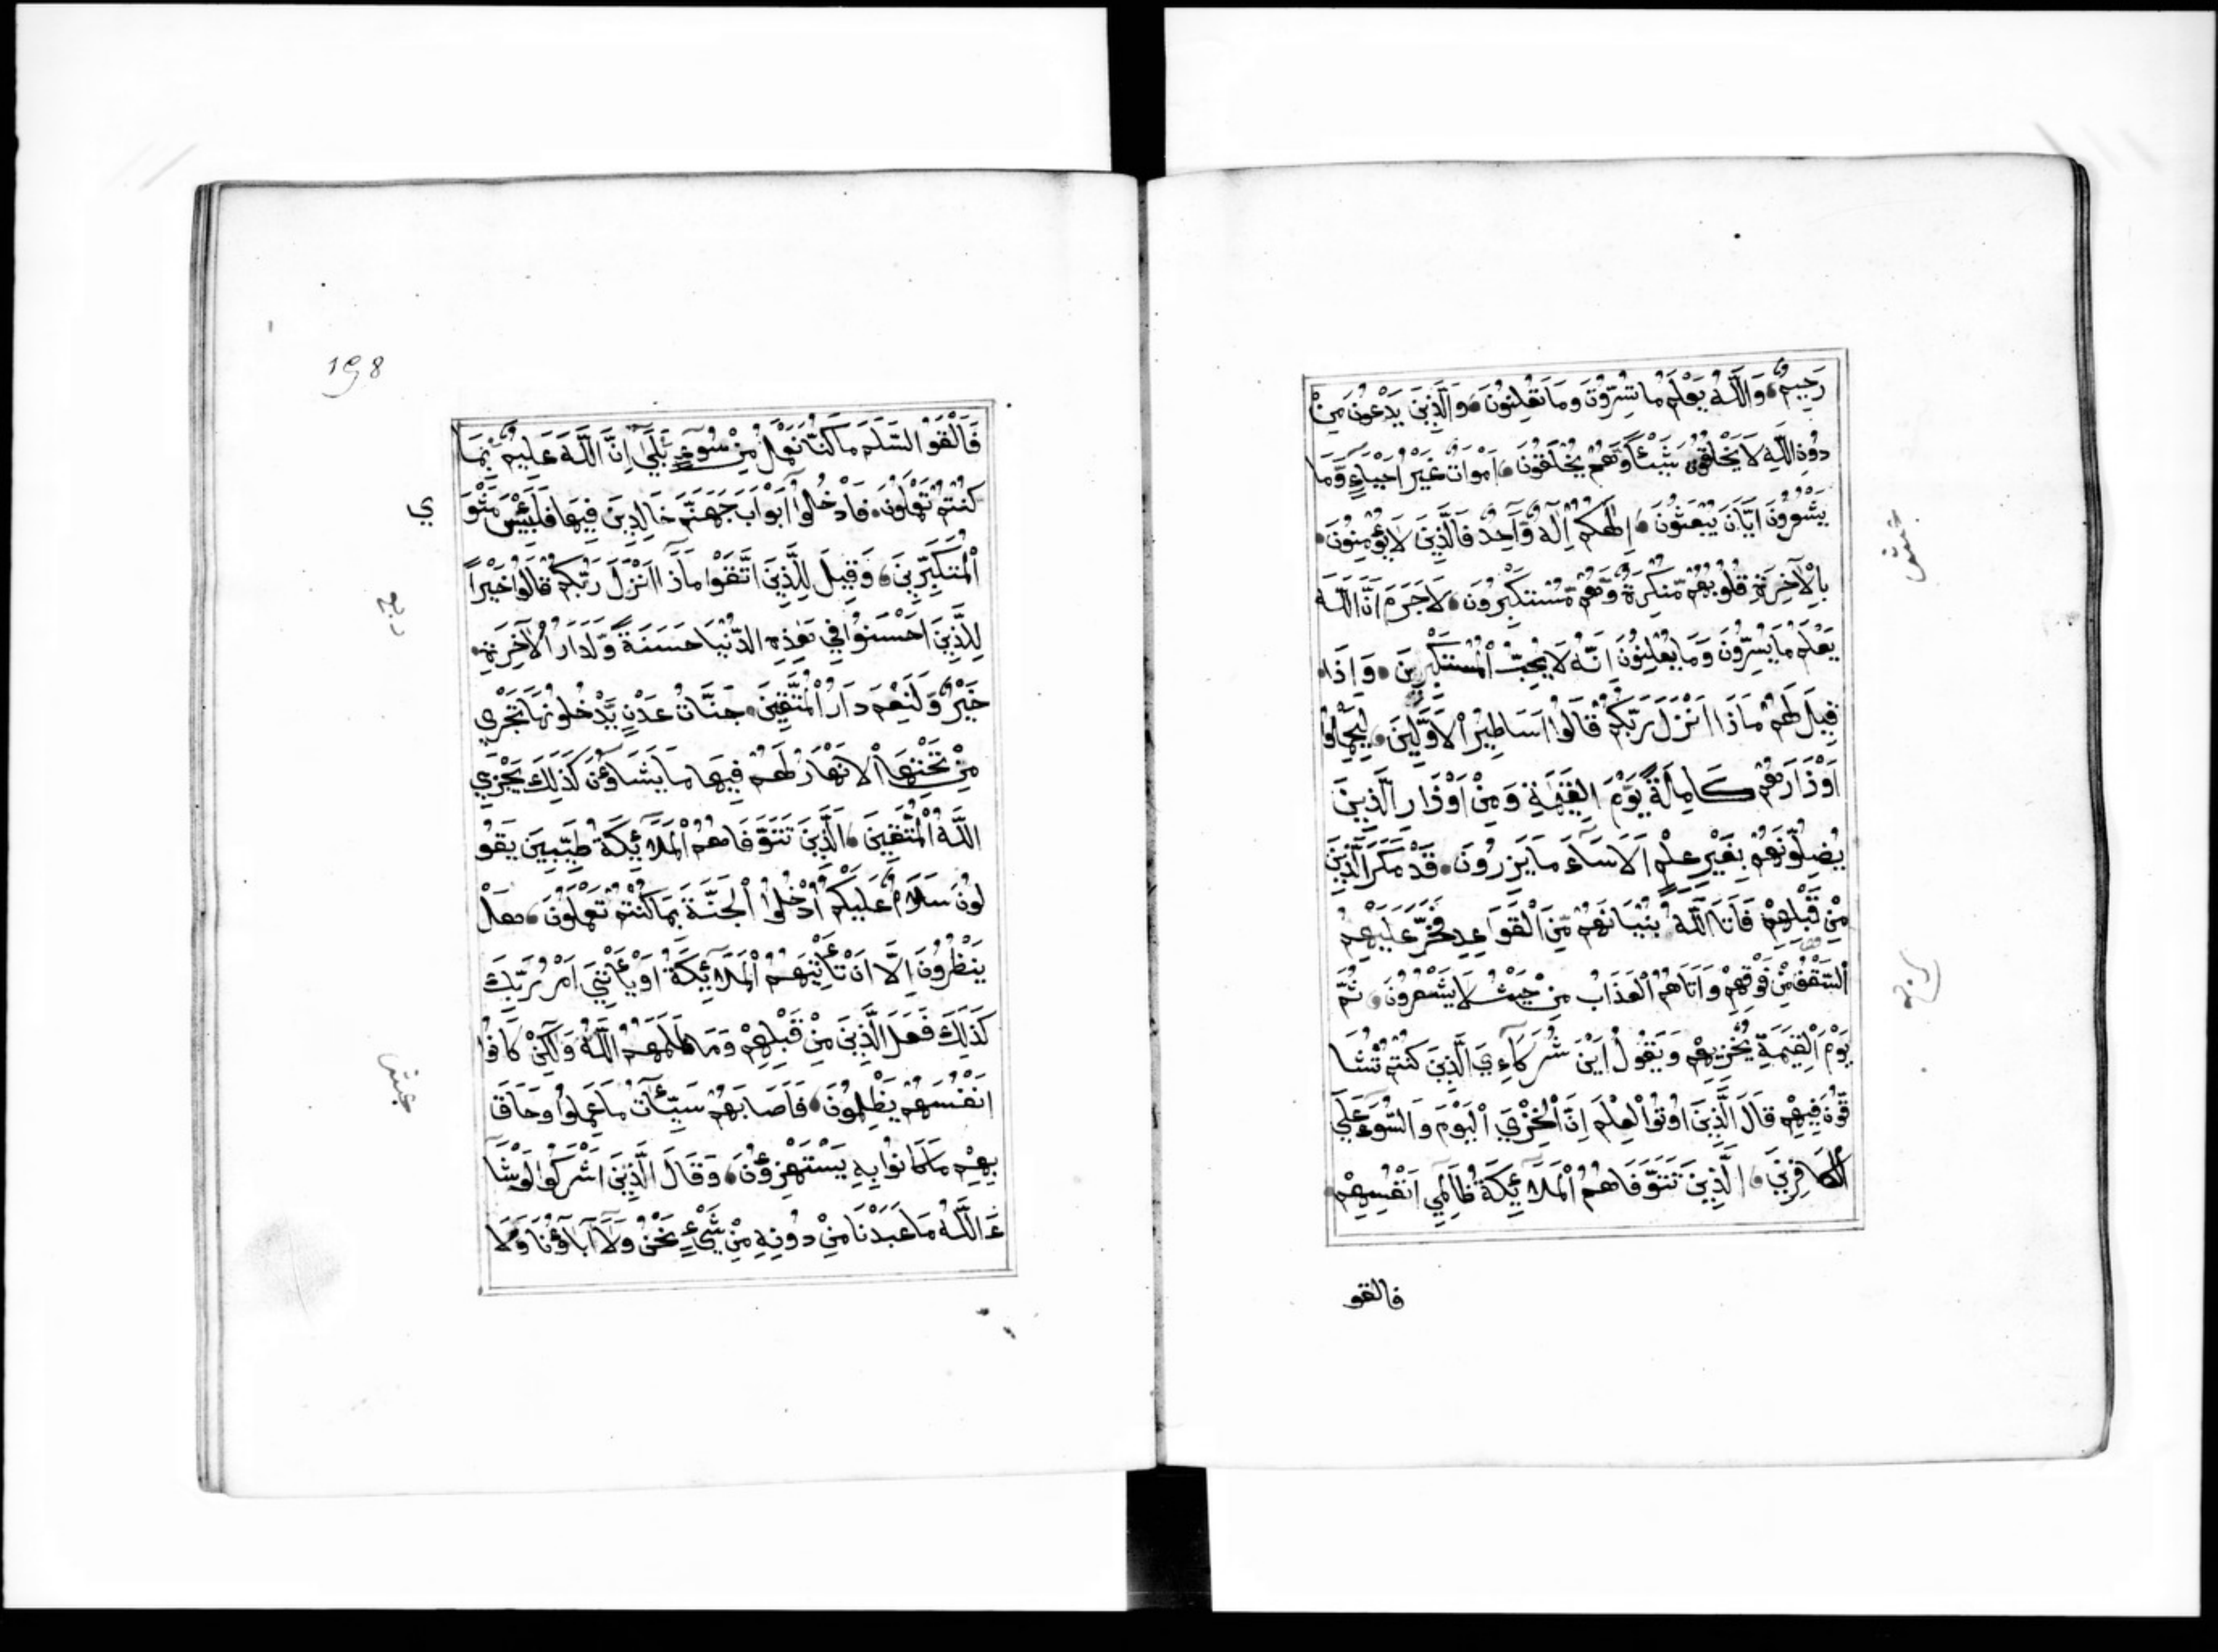 رَحِيمٌ وَاللَّهُ يَعْلَمُ مَا تُسِرُّونَ وَمَا تُعْلِنُونَ وَالَّذِينَ يَدْعُونَ مِنْ
دُونِ اللَّهِ لَا يَخْلُقُونَ شَيْئًا وَّهُمْ يُخْلَقُونَ اَمْوَاتٌ غَيْرُ اَحْيَاءٍ وَّمَا
يَشْعُرُونَ اَيَّانَ يُبْعَثُونَ اِلٰهُكُمْ اِلٰهٌ وَّاحِدٌ فَالَّذِينَ لَا يُؤْمِنُونَ
بِالْآخِرَةِ قُلُوبُهُمْ مُّنْكِرَةٌ وَّهُمْ مُّسْتَكْبِرُونَ لَا جَرَمَ اَنَّ اللَّهَ
يَعْلَمُ مَا يُسِرُّونَ وَمَا يُعْلِنُونَ اِنَّهُ لَا يُحِبُّ الْمُسْتَكْبِرِينَ وَاِذَا
قِيلَ لَهُمْ مَاذَا اَنْزَلَ رَبُّكُمْ قَالُوا اَسَاطِيْرُ الْاَوَّلِينَ لِيَحْمِلُوا
اَوْزَارَهُمْ كَامِلَةً يَوْمَ الْقِيٰمَةِ وَمِنْ اَوْزَارِ الَّذِينَ
يُضِلُّونَهُمْ بِغَيْرِ عِلْمٍ اَلَا سَاءَ مَا يَزِرُونَ قَدْ مَكَرَ الَّذِينَ
مِنْ قَبْلِهِمْ فَاَتَا اللَّهُ بُنْيَانَهُمْ مِّنَ الْقَوَاعِدِ فَخَرَّ عَلَيْهِمُ
السَّقْفُ مِنْ فَوْقِهِمْ وَاَتَاهُمُ الْعَذَابُ مِنْ حَيْثُ لَا يَشْعُرُونَ ثُمَّ
يَوْمَ الْقِيٰمَةِ يُخْزِيهِمْ وَيَقُولُ اَيْنَ شُرَكَآءِيَ الَّذِينَ كُنْتُمْ تُشَا
قُّونَ فِيهِمْ قَالَ الَّذِينَ اُوتُوا الْعِلْمَ اِنَّ الْخِزْيَ الْيَوْمَ وَالسُّوءَ عَلَي
الْكَافِرِينَ الَّذِينَ تَتَوَفَّاهُمُ الْمَلَآئِكَةُ ظَالِمِي اَنْفُسِهِمْ
فالقو
198
فَاَلْقَوُا السَّلَمَ مَا كُنَّا نَعْمَلُ مِنْ سُوءٍ بَلَي اِنَّ اللَّهَ عَلِيمٌ بِمَا
كُنْتُمْ تَعْمَلُونَ فَادْخُلُوا اَبْوَابَ جَهَنَّمَ خَالِدِينَ فِيهَا فَلَبِئْسَ مَثْوَ
ي
الْمُتَكَبِّرِينَ وَقِيلَ لِلَّذِينَ اتَّقَوْا مَاذَا اَنْزَلَ رَبُّكُمْ قَالُوا خَيْراً
لِلَّذِينَ اَحْسَنُوا فِي هٰذِهِ الدُّنْيَا حَسَنَةً وَّلَدَارُ الْآخِرَةِ
خَيْرٌ وَّلَنِعْمَ دَارُ الْمُتَّقِينَ جَنَّاتُ عَدْنٍ يَّدْخُلُونَهَا تَجْرِي
مِنْ تَحْتِهَا الْاَنْهَارُ لَهُمْ فِيهَا مَا يَشَاؤُنَ كَذَلِكَ يَجْزِي
اللَّهُ الْمُتَّقِينَ الَّذِينَ تَتَوَفَّاهُمُ الْمَلَآئِكَةُ طَيِّبِينَ يَقُو
لُونَ سَلَامٌ عَلَيْكُمُ ادْخُلُوا الْجَنَّةَ بِمَا كُنْتُمْ تَعْمَلُونَ هَلْ
يَنْظُرُونَ اِلَّا اَنْ تَأْتِيَهُمُ الْمَلَآئِكَةُ اَوْ يَأْتِيَ اَمْرُ رَبِّكَ
كَذَلِكَ فَعَلَ الَّذِينَ مِنْ قَبْلِهِمْ وَمَا ظَلَمَهُمُ اللَّهُ وَلَكِنْ كَانُوا
اَنْفُسَهُمْ يَظْلِمُونَ فَاَصَابَهُمْ سَيِّئَاتُ مَا عَمِلُوا وَحَاقَ
بِهِمْ مَا كَانُوا بِهِ يَسْتَهْزِؤُنَ وَقَالَ الَّذِينَ اَشْرَكُوا لَوْ شَا
ءَ اللَّهُ مَا عَبَدْنَا مِنْ دُونِهِ مِنْ شَيْءٍ نَحْنُ وَلَا آبَاؤُنَا وَلَا